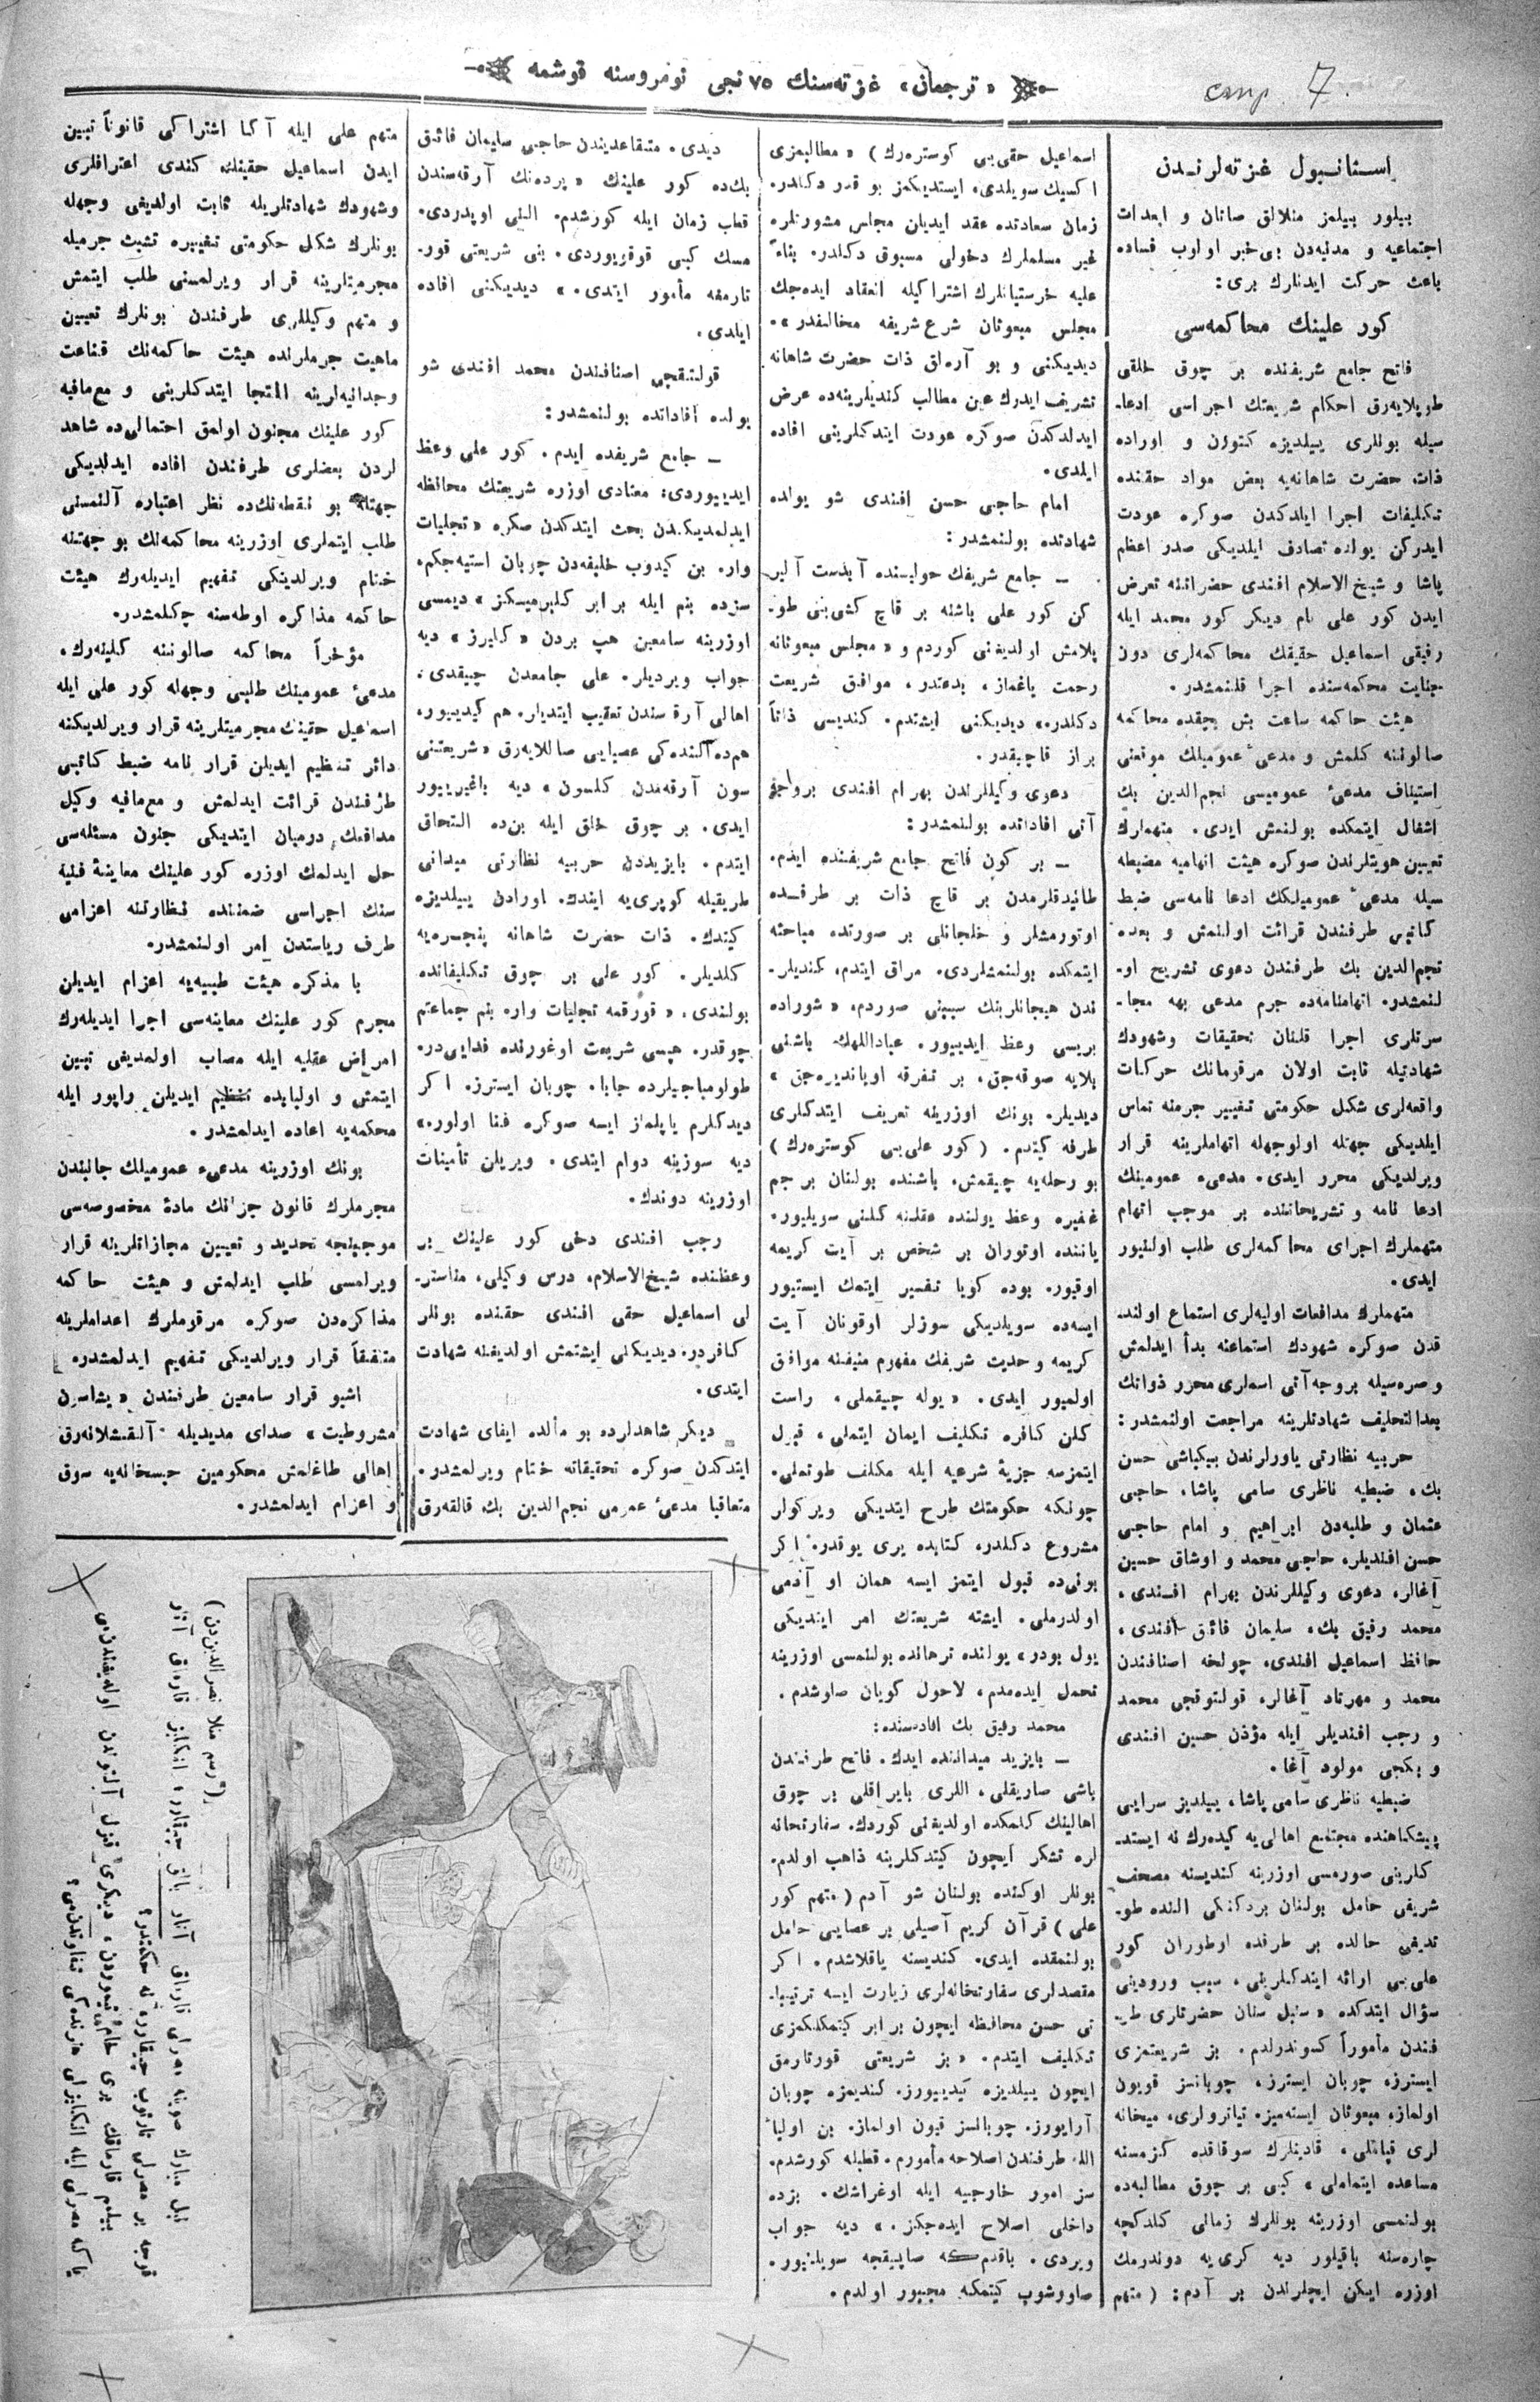 « ترجمان » غزته‌سنك ٧٥ نجی نومروسنه قوشمه
стр. 7.
استانبول غزته‌لرندن
بیلور بیلمز منلالق صاتان و ابعدات
اجتماعیه و مدنیه‌دن بی‌خبر اولوب فساده
باعث حركت ایدنلرك بری:
كور علینك محاكمه‌سی
فاتح جامع شریفنده بر چوق خلقی
طوپلایه‌رق احكام شریعتك اجراسی ادعا-
سیله یوللری ییلدیزه كتورن و اوراده
ذات حضرت شاهانه‌یه بعض مواد حقنده
تكلیفات اجرا ایلدكدن صوكره عودت
ایدركن یولده تصادف ایلدیكی صدر اعظم
پاشا و شیخ‌الاسلام افندی حضراتنه تعرض
ایدن كور علی نام دیكر كور محمد ایله
رفیقی اسماعیل حقینك محاكمه‌لری دون
جنایت محكمه‌سنده اجرا قلنمشدر.
هیئت حاكمه ساعت بش بچقده محاكمه
صالوننه كلمش و مدعیٔ عمومیلك موقعنی
استیناف مدعیٔ عمومیسی نجم‌الدین بك
اشغال ایتمكده بولنمش ایدی. متهملرك
تعیین هویتلرندن صوكره هیئت اتهامیه مضبطه
سیله مدعیٔ عمومیلكك ادعا نامه‌سی ضبط
كاتبی طرفندن قرائت اولنمش و بعده
نجم‌الدین بك طرفندن دعوی تشریح او-
لنمشدر. اتهامنامه‌ده جرم مدعی بهه مجا-
سرتلری اجرا قلنان تحقیقات وشهودك
شهادتیله ثابت اولان مرقومانك حركات
واقعه‌لری شكل حكومتی تغییر جرمنه تماس
ایلدیكی جهتله اولوجهله اتهاملرینه قرار
ویرلدیكی محرر ایدی. مدعیء عمومینك
ادعا نامه و تشریحاتنده بر موجب اتهام
متهملرك اجرای محاكمه‌لری طلب اولنیور
ایدی.
متهملرك مدافعات اولیه‌لری استماع اولند-
قدن صوكره شهودك استماعنه بدأ ایدلمش
وصره‌سیله بروجه‌آتی اسملری محرر ذواتك
بعدالتحلیف شهادتلرینه مراجعت اولنمشدر:
حربیه نظارتی یاورلرندن بیكباشی حسن
بك، ضبطیه ناظری سامی پاشا، حاجی
عثمان و طلبه‌دن ابراهیم و امام حاجی
حسن افندیلر، حاجی محمد و اوشاق حسین
آغالر، دعوی وكیللرندن بهرام افندی،
محمد رفیق بك، سلیمان فائق افندی،
حافظ اسماعیل افندی، چولخه اصنافندن
محمد و مهرتاد آغالر، قولتوقجی محمد
و رجب افندیلر ایله مؤذن حسین افندی
و بكجی مولود آغا.
ضبطیه ناظری سامی پاشا، ییلدیز سرایی
پیشگاهنده مجتمع اهالی‌یه كیده‌رك نه ایستد-
كلرینی صورمسی اوزرینه كندیسنه مصحف
شریفی حامل بولنان بردكنكی النده طو-
تدیغی حالده بر طرفده اوطوران كور
علی‌یی ارائه ایتدكلرینی، سبب ورودینی
سؤال ایتدكده « سنبل سنان حضرتلری طر-
فندن مأموراً كوندرلدم. بز شریعتمزی
ایسترز، چوبان ایسترز، چوبانسز قویون
اولماز، مبعوثان ایسته‌میز. تیاترولری، میخانه
لری قپاتملی، قادینلرك سوقاقده كزمسنه
مساعده ایتمه‌ملی » كبی بر چوق مطالبه‌ده
بولنمسی اوزرینه بونلرك زمانی كلدكچه
چاره‌سنه باقیلور دیه كری‌یه دوندرمك
اوزره ایكن ایچلرندن بر آدم: ( متهم
اسماعیل حقی‌یی كوستره‌رك) « مطالبمزی
اكسیك سویلدی، ایستدیكمز بو قدر دكلدر.
زمان سعادتده عقد ایدیلن مجلس مشورتلره
غیر مسلملرك دخولی مسبوق دكلدر. بناءً
علیه خرستیانلرك اشتراكیله انعقاد ایده‌جك
مجلس مبعوثان شرع شریفه مخالفدر ».
دیدیكنی و بو آره‌لق ذات حضرت شاهانه
تشریف ایدرك عین مطالب كندیلرینه‌ده عرض
ایدلدكدن صوكره عودت ایتدكلرینی افاده
ایلدی.
امام حاجی حسن افندی شو یولده
شهادتده بولنمشدر:
— جامع شریفك حولیسنده آبدست آلیر
كن كور علی باشنه بر قاچ كشی‌یی طو-
پلامش اولدیغنی كوردم و « مجلس مبعوثانه
رحمت یاغماز، بدعتدر، موافق شریعت
دكلدر.» دیدیكنی ایشتدم. كندیسی ذاتاً
براز قاچیقدر.
دعوی وكیللرندن بهرام افندی بروجه
آتی افاداتده بولنمشدر:
— بر كون فاتح جامع شریفنده ایدم.
طانیدقلرمدن بر قاچ ذات بر طرفده
اوتورمشلر و خلجانلی بر صورتده مباحثه
ایتمكده بولنمشلردی. مراق ایتدم، كندیلر-
ندن هیجانلرینك سببنی صوردم. « شوراده
بریسی وعظ ایدییور. عباداللهك باشنی
بلایه صوقه‌جق، بر تفرقه اویاندیره‌جق »
دیدیلر. بونك اوزرینه تعریف ایتدكلری
طرفه كیتدم. ( كور علی‌یی كوستره‌رك)
بو رحله‌یه چیقمش، باشنده بولنان برجم
غفیره وعظ یولنده عقلنه كلنی سویلیور.
یاننده اوتوران بر شخص بر آیت كریمه
اوقیور. بوده كویا تفسیر ایتمك ایستیور
ایسه‌ده سویلدیكی سوزلر اوقونان آیت
كریمه و حدیث شریفك مفهوم منیفنه موافق
اولمیور ایدی. « یوله چیقملی، راست
كلن كافره تكلیف ایمان ایتملی، قبول
ایتمزسه جزیهٔ شرعیه ایله مكلف طوتملی.
چونكه حكومتك طرح ایتدیكی ویركولر
مشروع دكلدر، كتابده یری یوقدر. اكر
بونی‌ده قبول ایتمز ایسه همان او آدمی
اولدرملی. ایشته شریعتك امر ایتدیكی
یول بودر» یولنده ترهاتده بولنمسی اوزرینه
تحمل ایده‌مدم، لاحول كویان صاوشدم.
محمد رفیق بك افاده‌سنده:
— بایزید میداننده ایدك. فاتح طرفندن
باشی صاریقلی، اللری بایراقلی بر چوق
اهالینك كلمكده اولدیغنی كوردك. سفارتخانه
لره تشكر ایچون كیتدكلرینه ذاهب اولدم.
بونلر اوكنده بولنان شو آدم ( متهم كور
علی) قرآن كریم آصیلی بر عصایی حامل
بولنمقده ایدی. كندیسنه یاقلاشدم. اكر
مقصدلری سفارتخانه‌لری زیارت ایسه ترتیبا-
تی حسن محافظه ایچون برابر كیتمكلكمزی
تكلیف ایتدم. « بز شریعتی قورتارمق
ایچون ییلدیزه كیدییورز. كندیمزه چوبان
آرایورز. چوبانسز قیون اولماز. بن اولیاء
الله طرفندن اصلاحه مأمورم. قطبله كورشدم.
سز امور خارجیه ایله اوغراشك. بزده
داخلی اصلاح ایده‌جكز.» دیه جواب
ویردی. باقدم كه صاپیقجه سویلنیور.
صاووشوب كیتمكه مجبور اولدم.
دیدی. متقاعدیندن حاجی سلیمان فائق
بك‌ده كور علینك « پرده‌نك آرقه‌سندن
قطب زمان ایله كورشدم. النی اوپدردی.
مسك كبی قوقویوردی. بنی شریعتی قور-
تارمغه مأمور ایتدی. » دیدیكنی افاده
ایلدی.
قولتقجی اصنافندن محمد افندی شو
یولده افاداتده بولنمشدر:
— جامع شریفده ایدم. كور علی وعظ
ایدییوردی: معتادی اوزره شریعتك محافظه
ایدلمدیكندن بحث ایتدكدن صكره « تجلیات
وار. بن كیدوب خلیفه‌دن چوبان استیه‌جكم،
سزده بنم ایله برابر كلیرمیسكز » دیمسی
اوزرینه سامعین هپ بردن « كلیرز » دیه
جواب ویردیلر. علی جامعدن چیقدی.
اهالی آرقه‌سندن تعقیب ایتدیلر. هم كیدییور،
هم‌ده النده‌كی عصایی صاللایه‌رق « شریعتنی
سون آرقه‌مدن كلسون » دیه باغیرییور
ایدی. بر چوق خلق ایله بن‌ده التحاق
ایتدم. بایزیددن حربیه نظارتی میدانی
طریقیله كوپری‌یه ایندك. اورادن ییلدیزه
كیتدك. ذات حضرت شاهانه پنجره‌یه
كلدیلر. كور علی بر چوق تكلیفاتده
بولندی. « قورقمه تجلیات وار. بنم جماعتم
چوقدر. هپسی شریعت اوغورنده فدایی‌در.
طولومباجیلرده جابا. چوبان ایسترز. اكر
دیدكلرم یاپلماز ایسه صوكره فنا اولور.»
دیه سوزینه دوام ایتدی. ویریلن تأمینات
اوزرینه دوندك.
رجب افندی دخی كور علینك بر
وعظنده شیخ‌الاسلام، درس وكیلی، مناستر-
لی اسماعیل حقی افندی حقنده بونلر
كافردر. دیدیكنی ایشتمش اولدیغنه شهادت
ایتدی.
دیكر شاهدلرده بو مألده ایفای شهادت
ایتدكدن صوكره تحقیقاته ختام ویرلمشدر.
متعاقباً مدعیٔ عمومی نجم‌الدین بك قالقه‌رق
متهم علی ایله آكا اشتراكی قانوناً تبین
ایدن اسماعیل حقینك كندی اعترافلری
وشهودك شهادتلریله ثابت اولدیغی وجهله
بونلرك شكل حكومتی تغییره تشبث جرمیله
مجرمیتلرینه قرار ویرلمسنی طلب ایتمش
و متهم وكیللری طرفندن بونلرك تعیین
ماهیت جرملرنده هیئت حاكمه‌نك قناعت
وجدانیه‌لرینه التجا ایتدكلرینی و مع‌مافیه
كور علینك مجنون اولمق احتمالی‌ده شاهد
لردن بعضلری طرفندن افاده ایدلدیكی
جهتله بو نقطه‌نك‌ده نظر اعتباره آلنمسنی
طلب ایتملری اوزرینه محاكمه‌نك بو جهتنه
ختام ویرلدیكی تفهیم ایدیله‌رك هیئت
حاكمه مذاكره اوطه‌سنه چكلمشدر.
مؤخراً محاكمه صالوننه كلینه‌رك،
مدعیٔ عمومینك طلبی وجهله كور علی ایله
اسماعیل حقینك مجرمیتلرینه قرار ویرلدیكنه
دائر تنظیم ایدیلن قرار نامه ضبط كاتبی
طرفندن قرائت ایدلمش و مع‌مافیه وكیل
مدافعك درمیان ایتدیكی جنون مسئله‌سی
حل ایدلمك اوزره كور علینك معاینهٔ فنیه
سنك اجراسی ضمننده نظارتنه اعزامی
طرف ریاستدن امر اولنمشدر.
با مذكره هیئت طبیه‌یه اعزام ایدیلن
مجرم كور علینك معاینه‌سی اجرا ایدیله‌رك
امراض عقلیه ایله مصاب اولمدیغی تبین
ایتمش و اولبابده تنظیم ایدیلن راپور ایله
محكمه‌یه اعاده ایدلمشدر.
بونك اوزرینه مدعیء عمومیلك جانبندن
مجرملرك قانون جزانك مادهٔ مخصوصه‌سی
موجبنجه تحدید و تعیین مجازاتلرینه قرار
ویرلمسی طلب ایدلمش و هیئت حاكمه
مذاكره‌دن صوكره مرقوملرك اعداملرینه
متفقاً قرار ویرلدیكی تفهیم ایدلمشدر.
اشبو قرار سامعین طرفندن « یشاسون
مشروطیت » صدای مدیدیله آلقشلانه‌رق
اهالی طاغلمش محكومین حبسخانه‌یه سوق
و اعزام ایدلمشدر.
(رسم منلا نصرالدین‌دن)